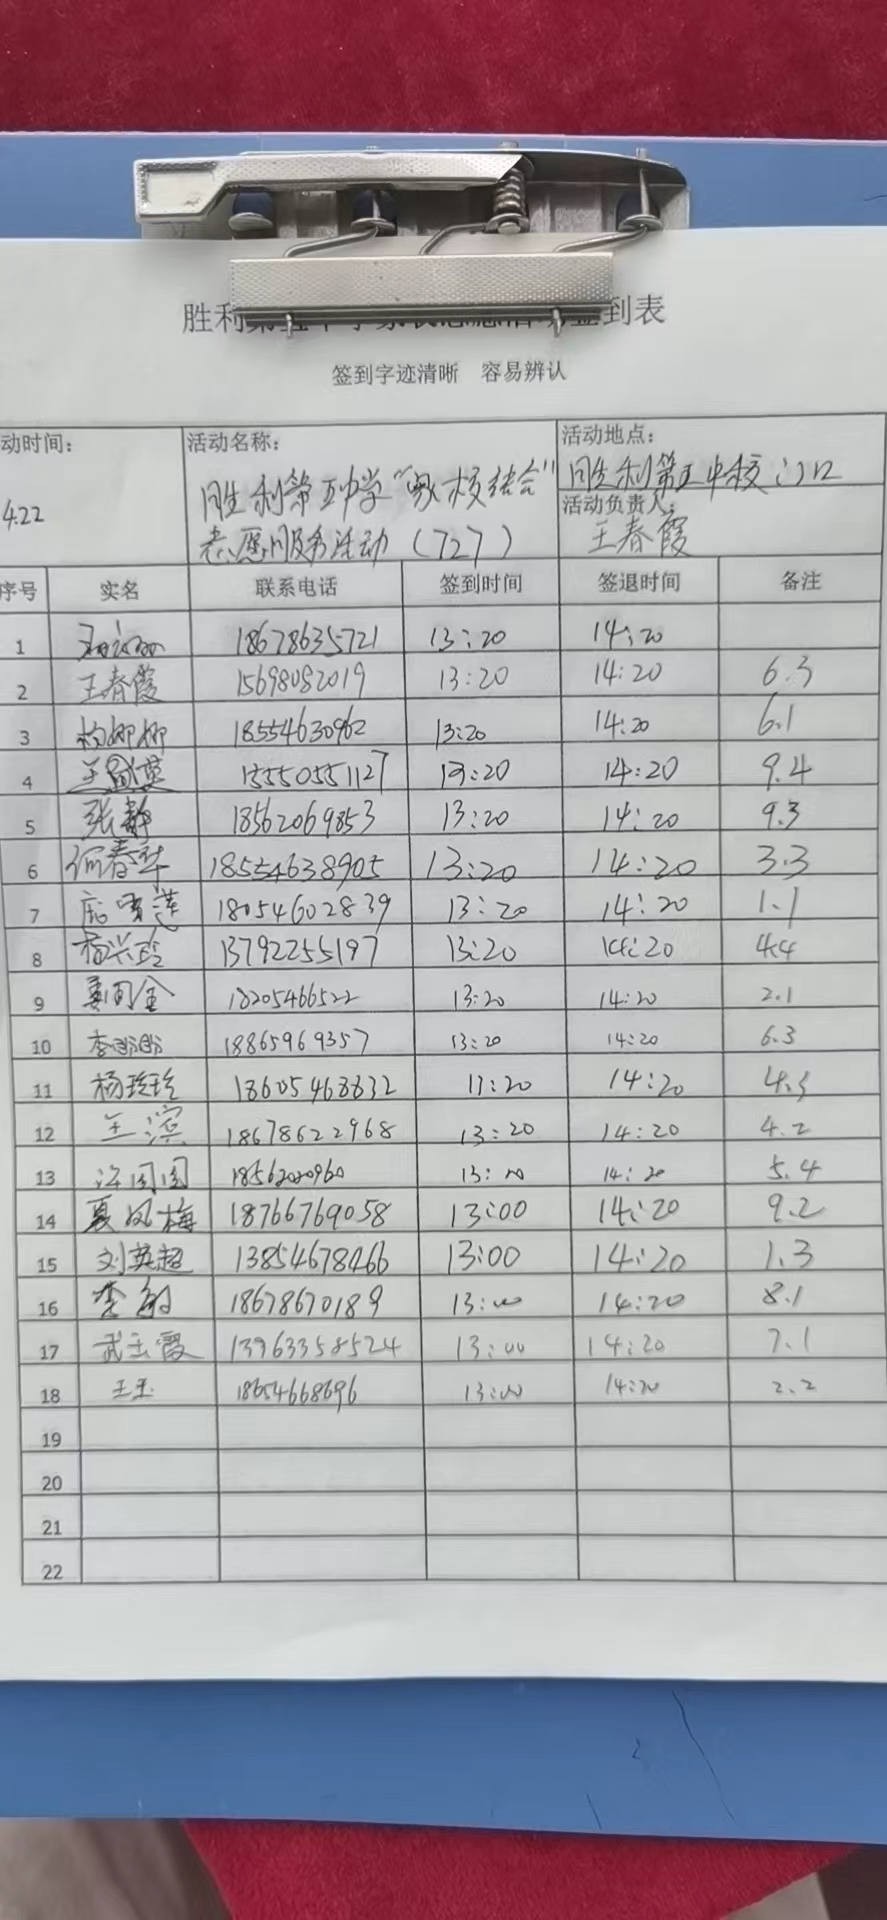 胜利第五中学家长志愿活动签到表
签到字迹清晰 容易辨认
动时间： 活动名称： 活动地点：
4.22 胜利第五中学"家校结合" 胜利第五中校门口
志愿服务活动（727） 活动负责人： 王春霞
序号 实名 联系电话 签到时间 签退时间 备注
1 18678635721 13:20 14:20
2 王春霞 15698052019 13:20 14:20 6.3
3 杨娜娜 18554630962 13:20 14:20 6.1
4 15550551127 13:20 14:20 9.4
5 张静 18562069853 13:20 14:20 9.3
6 何春华 18554638905 13:20 14:20 3.3
7 18054602839 13:20 14:20 1.1
8 杨兴玲 13792255197 13:20 14:20 4.4
9 18205466522 13:20 14:20 2.1
10 李盼盼 18865969357 13:20 14:20 6.3
11 杨玲玲 18605468832 13:20 14:20 4.3
12 王滨 18678622968 13:20 14:20 4.2
13 许团团 18562020960 13:20 14:20 5.4
14 夏风梅 18766769058 13:00 14:20 9.2
15 刘英超 13854678466 13:00 14:20 1.3
16 李敏 18678670189 13:00 14:20 8.1
17 武玉霞 13963358524 13:00 14:20 7.1
18 王玉 18654668696 13:00 14:20 2.2
19
20
21
22